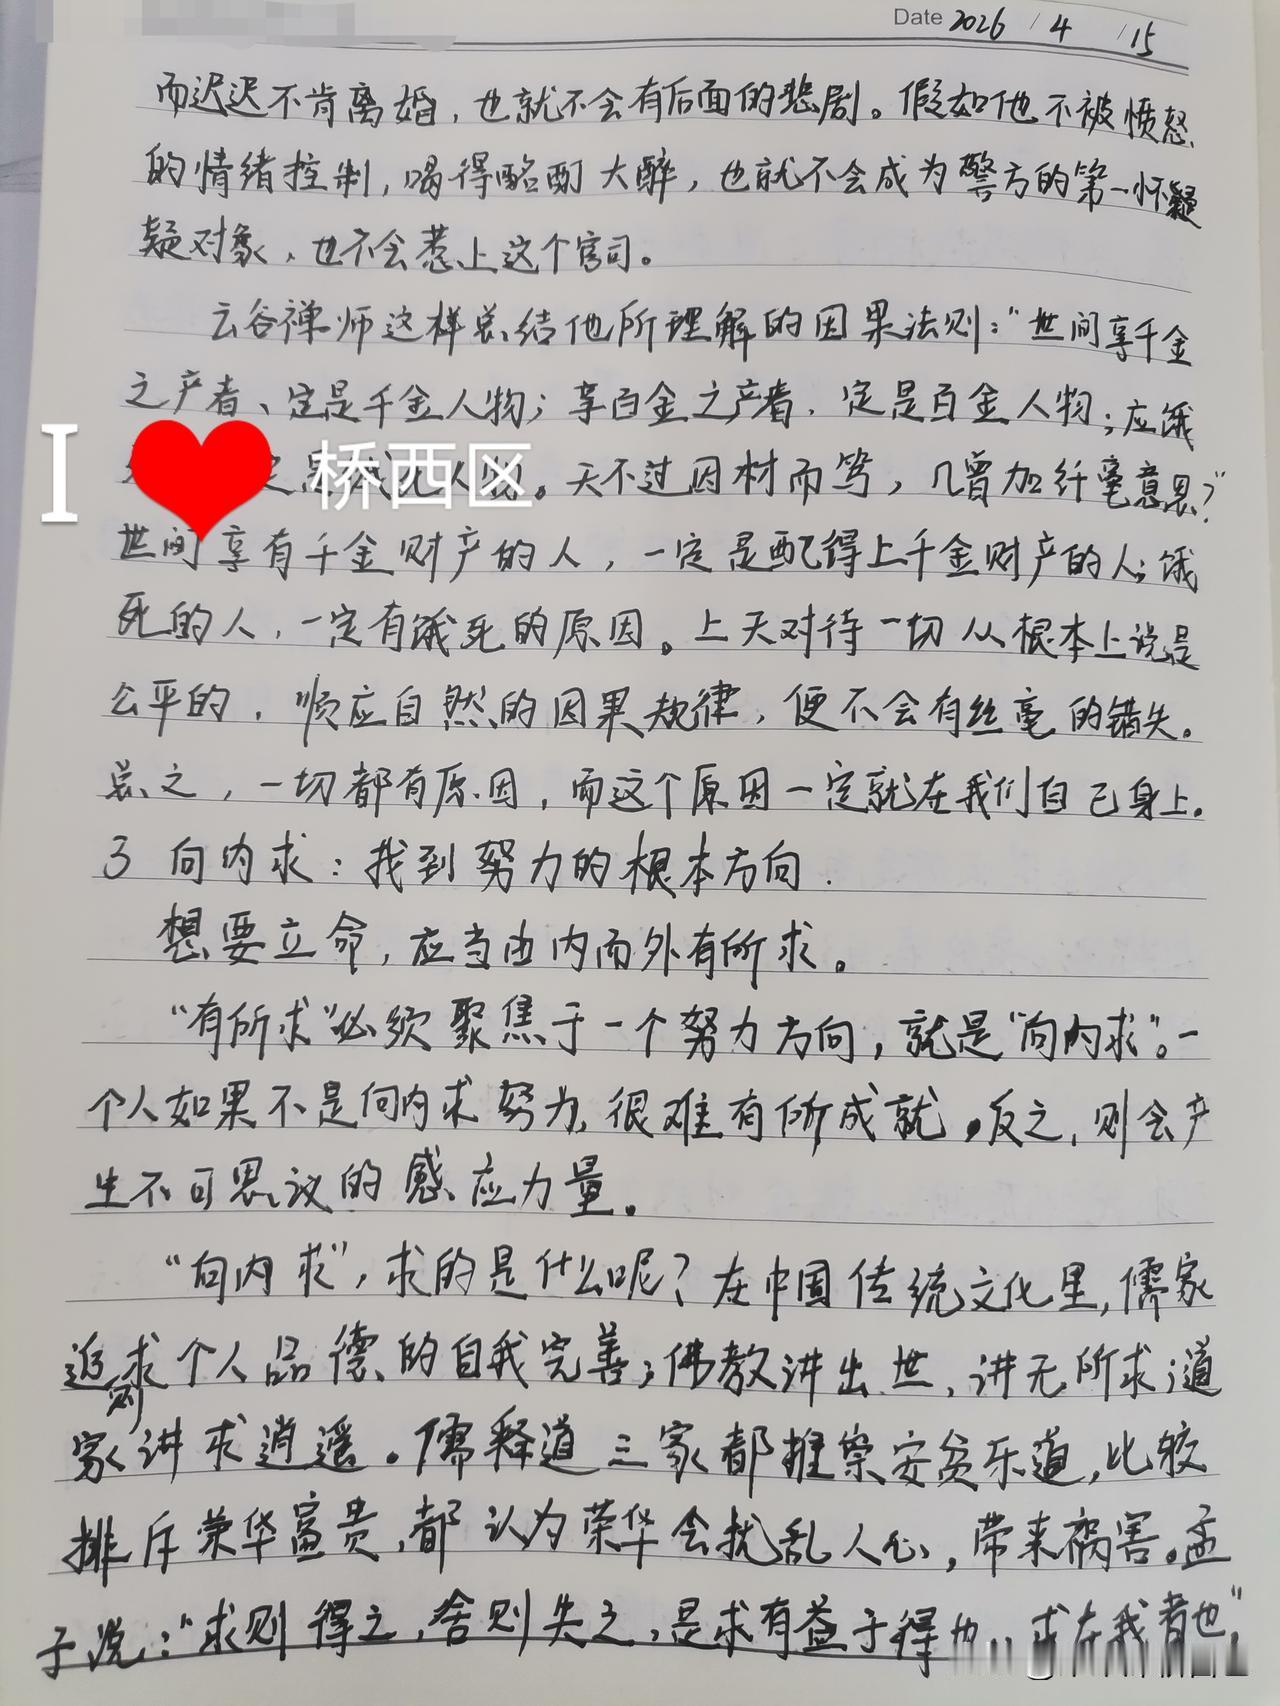 Date 2026 / 4 / 15
而迟迟不肯离婚，也就不会有后面的悲剧。假如他不被愤怒
的情绪控制，喝得酩酊大醉，也就不会成为警方的第一怀疑
疑对象、也不会惹上这个官司。
云谷禅师这样总结他所理解的因果法则："世间享千金
之产者、定是千金人物；享百金之产者，定是百金人物；应饿
物。天不过因材而笃，几曾加纤毫意思？"
I 桥西区
世间享有千金财产的人，一定是配得上千金财产的人；饿
死的人，一定有饿死的原因。上天对待一切从根本上说是
公平的，顺应自然的因果规律，便不会有丝毫的错失。
总之，一切都有原因，而这个原因一定就在我们自己身上。
3 向内求：找到努力的根本方向.
想要立命，应当由内而外有所求。
"有所求"必须聚焦于一个努力方向，就是"向内求"。一
个人如果不是向内求努力，很难有所成就。反之，则会产
生不可思议的感应力量。
"向内求"，求的是什么呢？在中国传统文化里，儒家
追求个人品德的自我完善；佛教讲出世，讲无所求；道
家则讲求逍遥。儒释道三家都推崇安贫乐道，比较
排斥荣华富贵，都认为荣华会扰乱人心，带来祸害。孟
子说："求则得之，舍则失之，是求有益于得也，求在我者也"